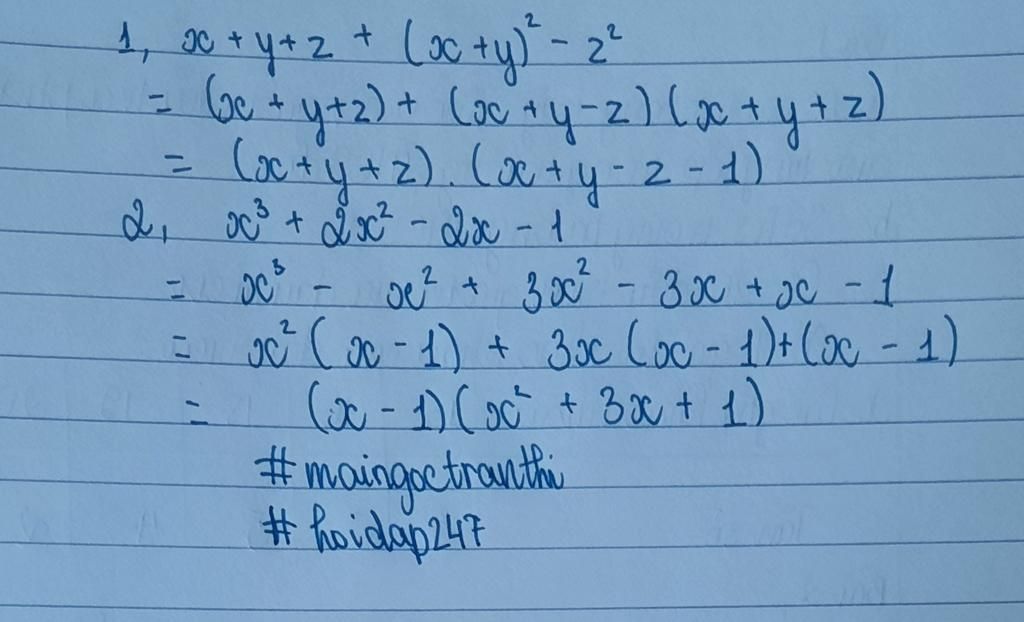 1, x + y + z + (x + y)² - z²
= (x + y + z) + (x + y - z)(x + y + z)
= (x + y + z).(x + y - z - 1)
2, x³ + 2x² - 2x - 1
= x³ - x² + 3x² - 3x + x - 1
= x²(x - 1) + 3x(x - 1)+(x - 1)
= (x - 1)(x² + 3x + 1)
# maingoctranthi
# hoidap247